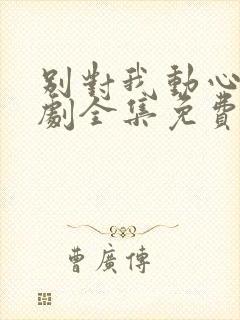 別對我動心
劇全集免費
曹廣傳